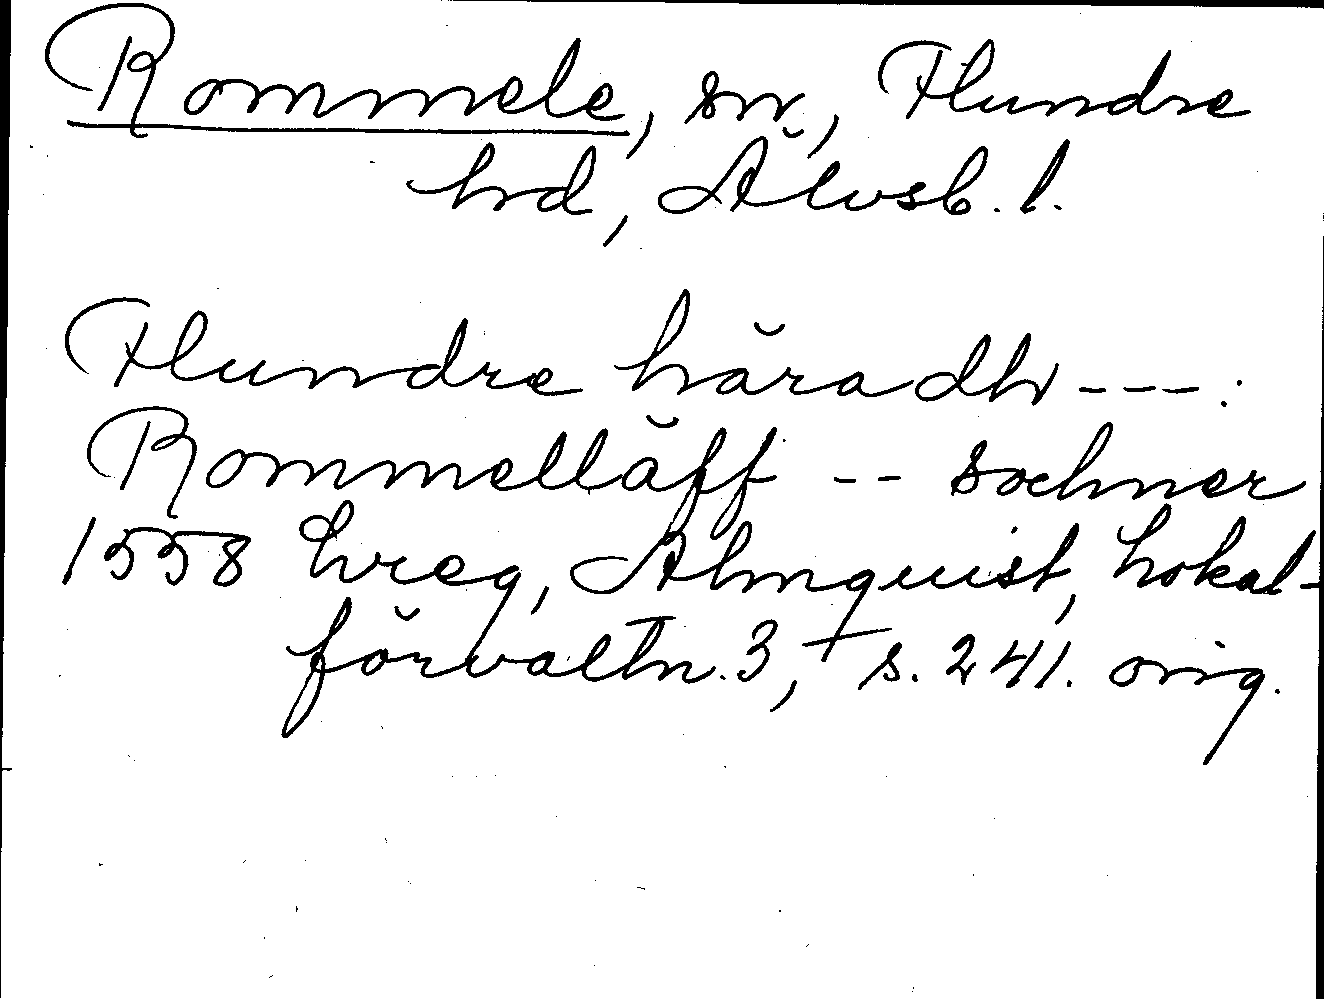 Rommele, sn, Flundre
hd, Älvsb. l.
Flundre häradh ---.:
Rommelläff -- sochner
1558 lvreg, Almquist, Lokal-
förvaltn. 3, + s. 241. orig.